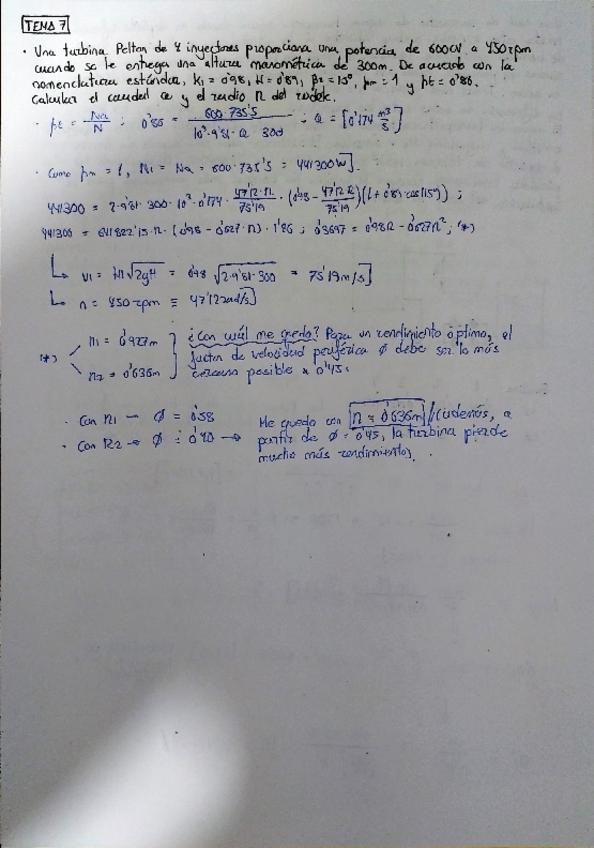 TEMA 7
• Una turbina Pelton de 4 inyectores proporciona una potencia de 600CV a 450rpm
cuando se le entrega una altura manométrica de 300m. De acuerdo con la
nomenclatura estándar, k1 = 0'98, K = 0'89, β2 = 15º, ρm = 1 y ρt = 0'86.
Calcular el caudal Q y el radio R del rodete.
• ρt = Na/N ; 0'86 = 600·735'5 / 10³·9'81·Q·300 ; Q = [0'174 m³/s]
• Como ρm = 1, Ni = Na = 600·735'5 = 441300W]
441300 = 2·9'81·300·10³·0'174· 47'12·R/75'19 · (0'98 - 47'12 R/75'19)(1+0'89·cos(15º)) ;
441300 = 641822'15·R·(0'98 - 0'627·R)·1'86 ; 0'3697 = 0'98R - 0'627R² ; (*)
↳ v1 = k1√2gH = 0'98 √2·9'81·300 = 75'19m/s]
↳ n = 450rpm ≡ 47'12rad/s]
(*) R1 = 0'927m
R2 = 0'636m
¿Con cuál me quedo? Para un rendimiento óptimo, el
factor de velocidad periférica ϕ debe ser lo más
cercano posible a 0'45.
• Con R1 → ϕ = 0'58
• Con R2 → ϕ = 0'40 →
Me quedo con R = 0'636m // (además, a
partir de ϕ = 0'45, la turbina pierde
mucho más rendimiento).